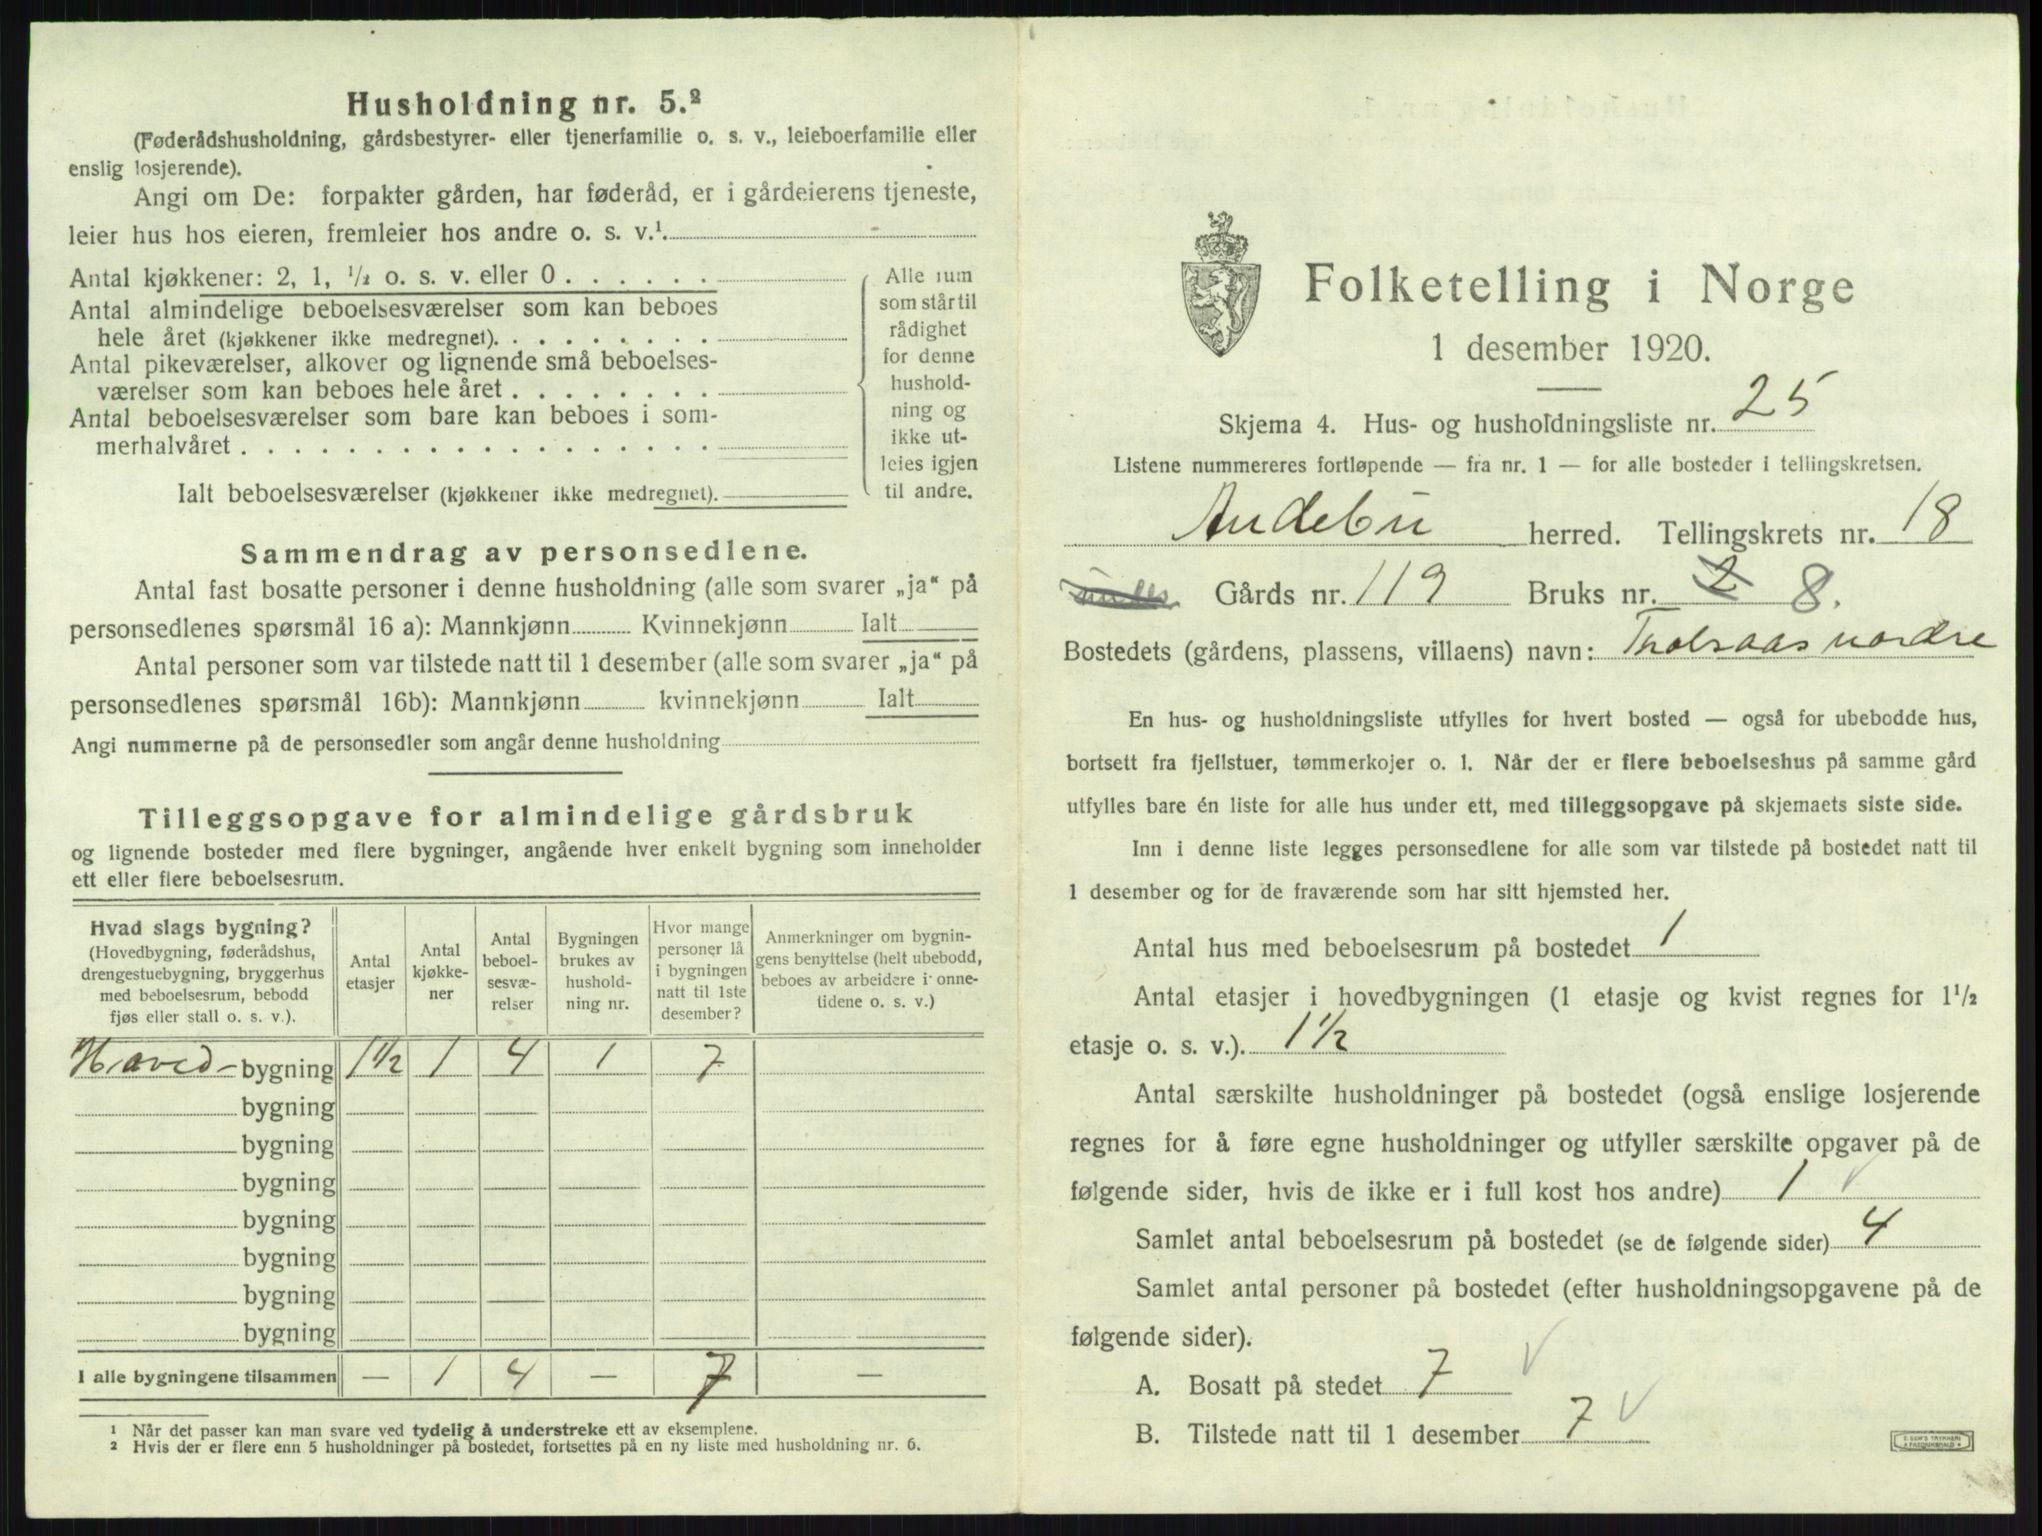 Husholdning nr. 5.²
(Føderådshusholdning, gårdsbestyrer- eller tjenerfamilie o. s. v., leieboerfamilie eller
enslig losjerende).
Angi om De: forpakter gården, har føderåd, er i gårdeierens tjeneste,
leier hus hos eieren, fremleier hos andre o. s. v.¹.
Antal kjøkkener: 2, 1, ½ o. s. v. eller 0 . . . . . .
Antal almindelige beboelsesværelser som kan beboes
hele året (kjøkkener ikke medregnet). . . . . . . . .
Antal pikeværelser, alkover og lignende små beboelses-
værelser som kan beboes hele året . . . . . . . .
Antal beboelsesværelser som bare kan beboes i som-
merhalvåret . . . . . . . . . . . . . . . . . .
Ialt beboelsesværelser (kjøkkener ikke medregnet).
Alle rum
som står til
rådighet
for denne
hushold-
ning og
ikke ut-
leies igjen
til andre.
Sammendrag av personsedlene.
Antal fast bosatte personer i denne husholdning (alle som svarer „ja“ på
personsedlenes spørsmål 16 a): Mannkjønn Kvinnekjønn Ialt
Antal personer som var tilstede natt til 1 desember (alle som svarer „ja“ på
personsedlenes spørsmål 16b): Mannkjønn kvinnekjønn Ialt
Angi nummerne på de personsedler som angår denne husholdning
Tilleggsopgave for almindelige gårdsbruk
og lignende bosteder med flere bygninger, angående hver enkelt bygning som inneholder
ett eller flere beboelsesrum.
Hvad slags bygning?
(Hovedbygning, føderådshus,
drengestuebygning, bryggerhus
med beboelsesrum, bebodd
fjøs eller stall o. s. v.).
Antal
etasjer
Antal
kjøkke-
ner
Antal
beboel-
sesvæ-
relser
Bygningen
brukes av
hushold-
ning nr.
Hvor mange
personer lå
i bygningen
natt til 1ste
desember?
Anmerkninger om bygnin-
gens benyttelse (helt ubebodd,
beboes av arbeidere i onne-
tidene o. s. v.)
Hoved- bygning 1½ 1 4 1 7
bygning
bygning
bygning
bygning
bygning
bygning
bygning
I alle bygningene tilsammen — 1 4 — 7 —
¹ Når det passer kan man svare ved tydelig å understreke ett av eksemplene.
² Hvis der er flere enn 5 husholdninger på bostedet, fortsettes på en ny liste med husholdning nr. 6.
Folketelling i Norge
1 desember 1920.
Skjema 4. Hus- og husholdningsliste nr. 25
Listene nummereres fortløpende — fra nr. 1 — for alle bosteder i tellingskretsen.
Andebu herred. Tellingskrets nr. 18
Gårds nr. 119 Bruks nr. 2 8.
Bostedets (gårdens, plassens, villaens) navn: Trolsaas nordre
En hus- og husholdningsliste utfylles for hvert bosted — også for ubebodde hus,
bortsett fra fjellstuer, tømmerkojer o. l. Når der er flere beboelseshus på samme gård
utfylles bare én liste for alle hus under ett, med tilleggsopgave på skjemaets siste side.
Inn i denne liste legges personsedlene for alle som var tilstede på bostedet natt til
1 desember og for de fraværende som har sitt hjemsted her.
Antal hus med beboelsesrum på bostedet 1
Antal etasjer i hovedbygningen (1 etasje og kvist regnes for 1½
etasje o. s. v.). 1½
Antal særskilte husholdninger på bostedet (også enslige losjerende
regnes for å føre egne husholdninger og utfyller særskilte opgaver på de
følgende sider, hvis de ikke er i full kost hos andre) 1
Samlet antal beboelsesrum på bostedet (se de følgende sider) 4
Samlet antal personer på bostedet (efter husholdningsopgavene på de
følgende sider).
A. Bosatt på stedet 7
B. Tilstede natt til 1 desember 7